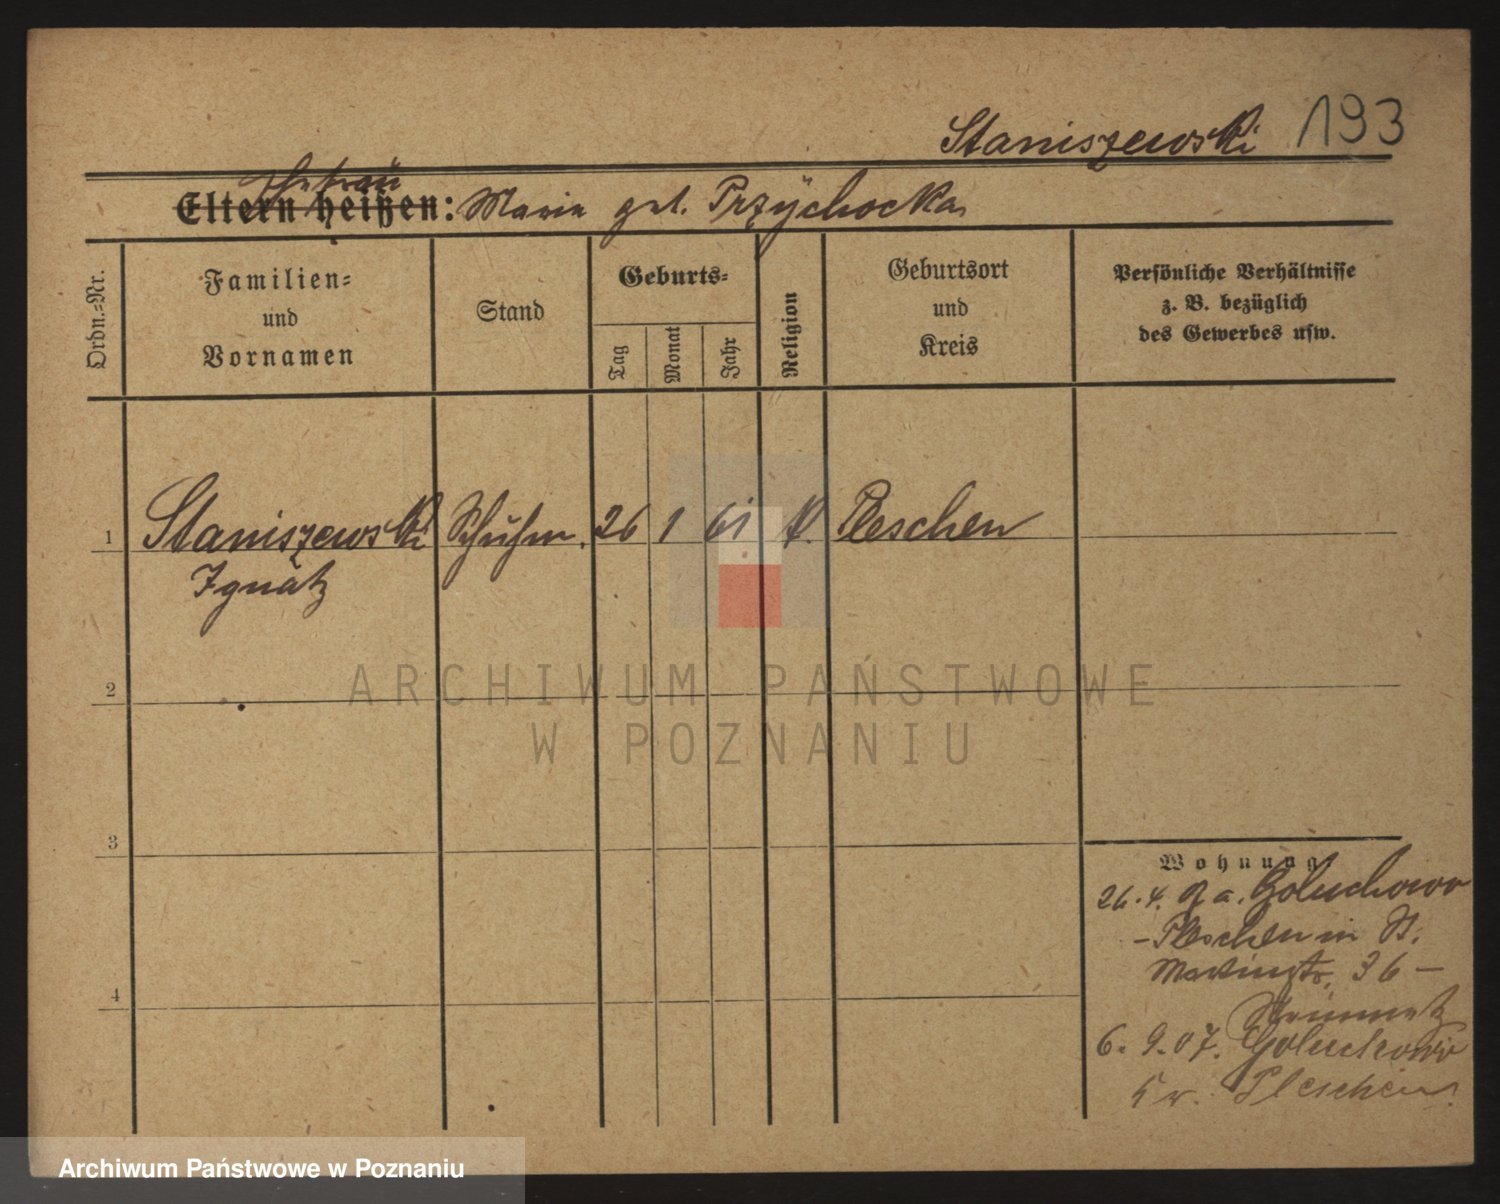 Staniszewski 193
Ehefrau
Eltern heißen: Maria geb. Przychocka
Ordn.-Nr.
Familien-
und
Vornamen
Stand
Geburts-
Tag
Monat
Jahr
Religion
Geburtsort
und
Kreis
Persönliche Verhältnisse
z. B. bezüglich
des Gewerbes usw.
1 Staniszewski Schuhm. 26 1 61 k. Pleschen
Ignatz
2
ARCHIWUM PAŃSTWOWE
W POZNANIU
3
Wohnung
26.4. a. Goluchowo
-Pleschen in St.
Martinstr. 36 -
6.9.07. Goluchowo
Kr. Pleschen.
4
Archiwum Państwowe w Poznaniu